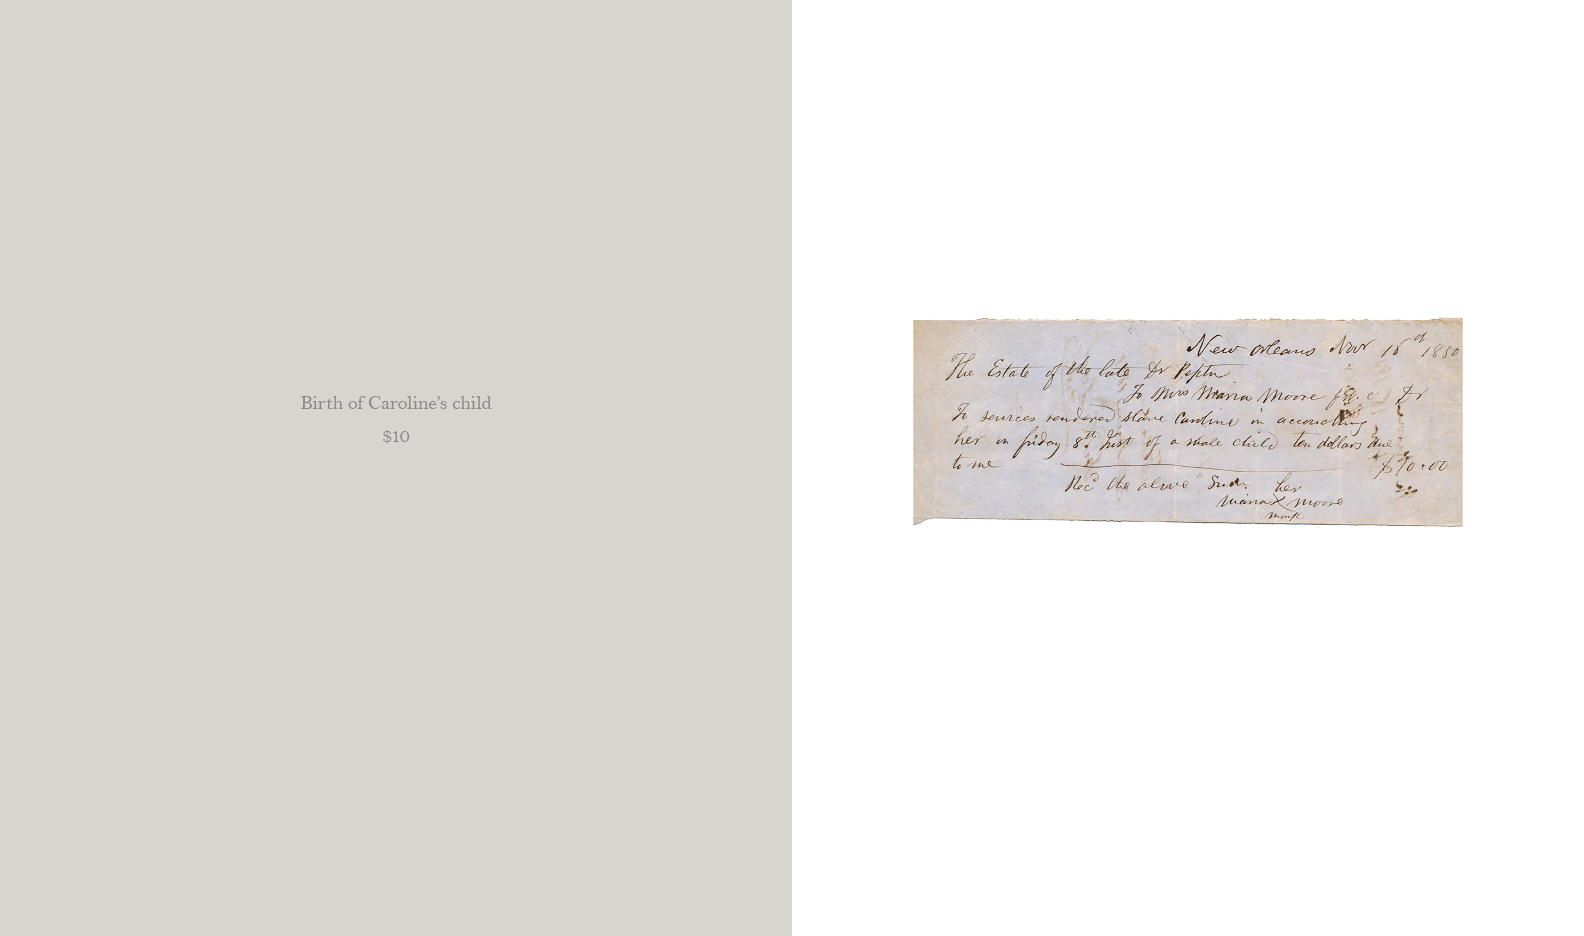 Birth of Caroline's child
$10
New Orleans Novr 16th 1850
The Estate of the late Dr
To Mrs Maria Moore f.w.c. Dr
To services rendered slave Caroline in accouching
her on friday 8th Inst of a male child ten dollars due
to me $10.00
Recd the above Sum. her
Maria X Moore
mark